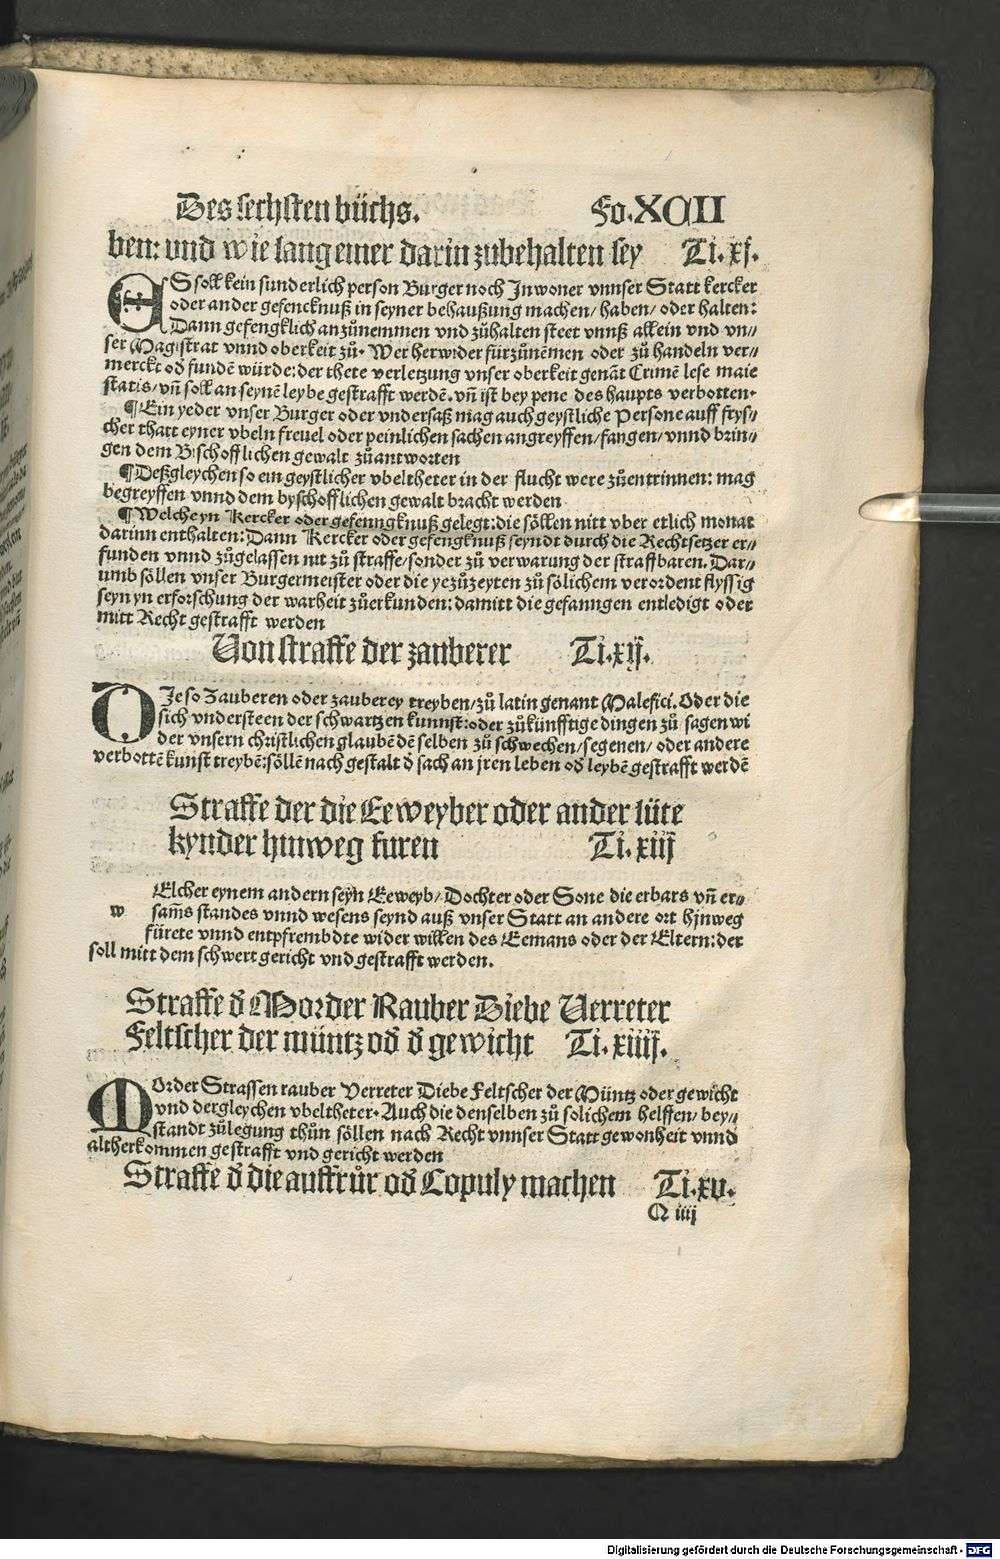 Des sechsten bůchs. Fo.XCII
ben: und wie lang einer darin zubehalten sey Ti. xj.
ES soll kein sunderlich person Burger noch Inwoner vnnser Statt kercker
oder ander gefencknuß in seyner behaußung machen/ haben/ oder halten:
Dann gefengklich anzůnemmen vnd zůhalten steet vnnß allein vnd vn//
ser Magistrat vnnd oberkeit zů. Wer herwider fürzůnēmen oder zů handeln ver//
merckt oď fundē würde: der thete verletzung vnser oberkeit genāt Crimē lese maie
statis/ vñ soll an seynē leybe gestrafft werdē. vñ ist bey pene des haupts verbotten.
¶Ein yeder vnser Burger oder vndersaß mag auch geystliche Persone auff frys//
cher thatt eyner vbeln freuel oder peinlichen sachen angreyffen/ fangen/ vnnd brin//
gen dem Bischofflichen gewalt zůantworten
¶Deßgleychen so ein geystlicher vbeltheter in der flucht were zůentrinnen: mag
begreyffen vnnd dem byschofflichen gewalt bracht werden
¶Welche yn Kercker oder gefenngknuß gelegt: die söllen nitt vber etlich monat
darinn enthalten: Dann Kercker oder gefengknuß seyndt durch die Rechtsetzer er//
funden vnnd zůgelassen nit zů straffe/ sonder zů verwarung der straffbaren. Dar//
umb söllen vnser Burgermeister oder die yezůzeyten zů sölichem verordent flyssig
seyn yn erforschung der warheit zůerkunden: damitt die gefanngen entledigt oder
mitt Recht gestrafft werden
Von straffe der zauberer Ti.xij.
DJe so Zauberen oder zauberey treyben/ zů latin genant Malefici. Oder die
sich vndersteen der schwartzen kunnst: oder zůkünfftige dingen zů sagen wi
der vnsern christlichen glaubē dē selben zů schwechen/ segenen/ oder andere
verbottē kunst treybē: söllē nach gestalt ď sach an jren leben oď leybē gestrafft werdē
Straffe der die Eeweyber oder ander lüte
kynder hinweg furen Ti. xiij
w Elcher eynem andern seyn Eeweyb/ Dochter oder Sone die erbars vñ er//
sam̄s standes vnnd wesens seynd auß vnser Statt an andere ort hinweg
fürete vnnd entpfrembdte wider willen des Eemans oder der Eltern: der
soll mitt dem schwert gericht vnd gestrafft werden.
Straffe ď Morder Rauber Diebe Verreter
Feltscher der müntz oď ď gewicht Ti. xiiij.
MOrder Strassen rauber Verreter Diebe Feltscher der Müntz oder gewicht
vnd dergleychen vbeltheter. Auch die denselben zů solichem helffen/ bey//
standt zůlegung thůn söllen nach Recht vnnser Statt gewonheit vnnd
altherkommen gestrafft vnd gericht werden
Straffe ď die auffrůr oď Copuly machen Ti.xv.
Q iiij
Digitalisierung gefördert durch die Deutsche Forschungsgemeinschaft - DFG